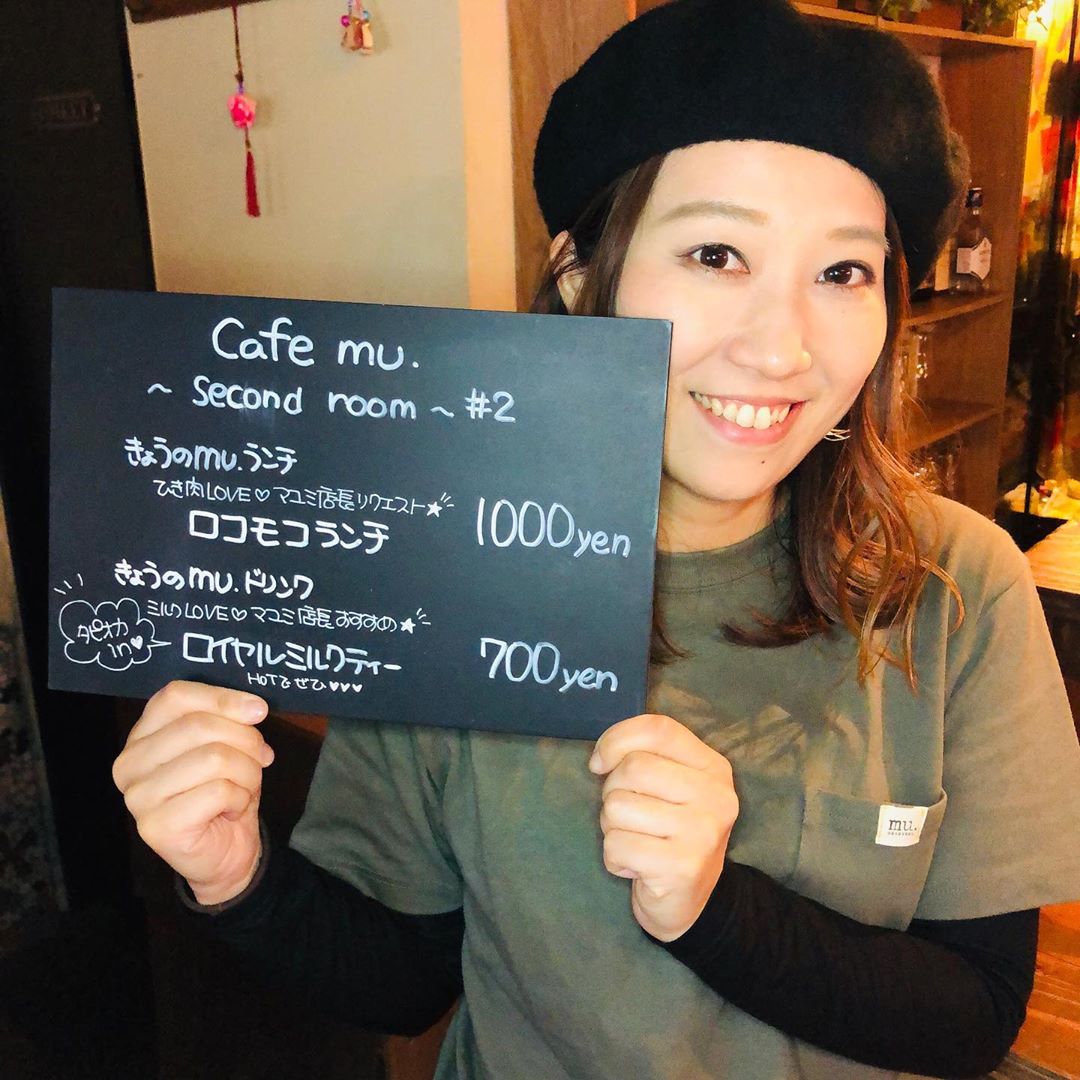 Cafe mu.
~ second room ~ #2
きょうのmu.ランチ
ひき肉LOVE♡マユミ店長リクエスト★
ロコモコランチ 1000yen
きょうのmu.ドリンク
ミルクLOVE♡マユミ店長おすすめ★
タピオカ
in♥
ロイヤルミルクティー 700yen
HOTでぜひ♥♥♥
mu.